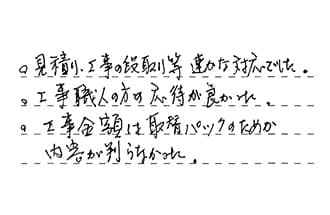 ○見積り、工事の段取り等 速かな対応でした。
○工事職人の方の応待が良かった。
○工事金額は取替パックのためか
内容が判らなかった。